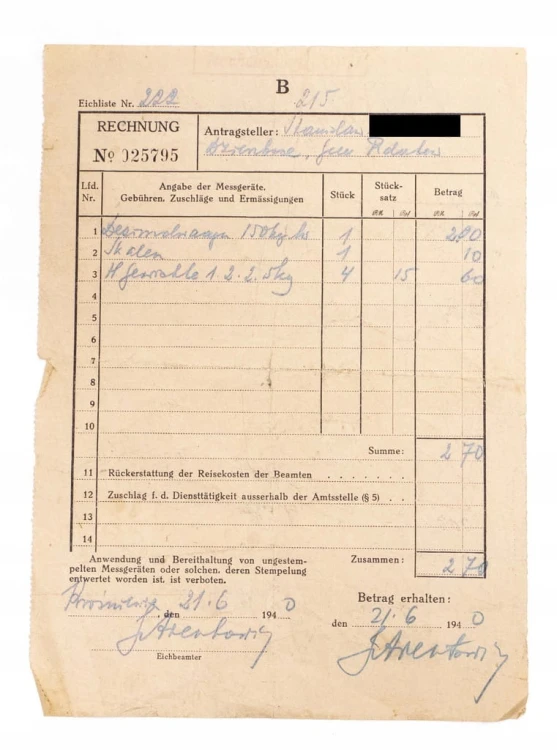 B
Eichliste Nr. 222
215
RECHNUNG
№ 025795
Antragsteller: Stanislaw
Lfd. Nr.
Angabe der Messgeräte, Gebühren, Zuschläge und Ermässigungen
Stück
Stück-satz
Betrag
RM Rpf RM Rpf
1 Dezimalwaagen 150kg 1 2 00
2 Skalen 1 10
3 H Gewichte 1 2. 2. 5kg 4 15 60
4
5
6
7
8
9
10
Summe: 2 70
11 Rückerstattung der Reisekosten der Beamten . . . . . . .
12 Zuschlag f. d. Diensttätigkeit ausserhalb der Amtsstelle (§ 5) . .
13
14
Anwendung und Bereithaltung von ungestem-
pelten Messgeräten oder solchen, deren Stempelung
entwertet worden ist, ist verboten.
Zusammen: 2 70
, den 21.6 1940
Eichbeamter
Betrag erhalten:
den 21.6 1940